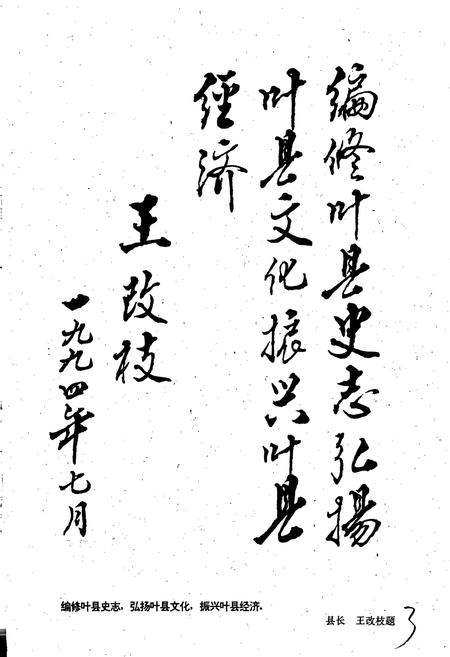 编修叶县史志弘揚
叶县文化振兴叶县
经济
王改枝
一九九四年七月
编修叶县史志，弘扬叶县文化，振兴叶县经济。
县长 王改枝题
3